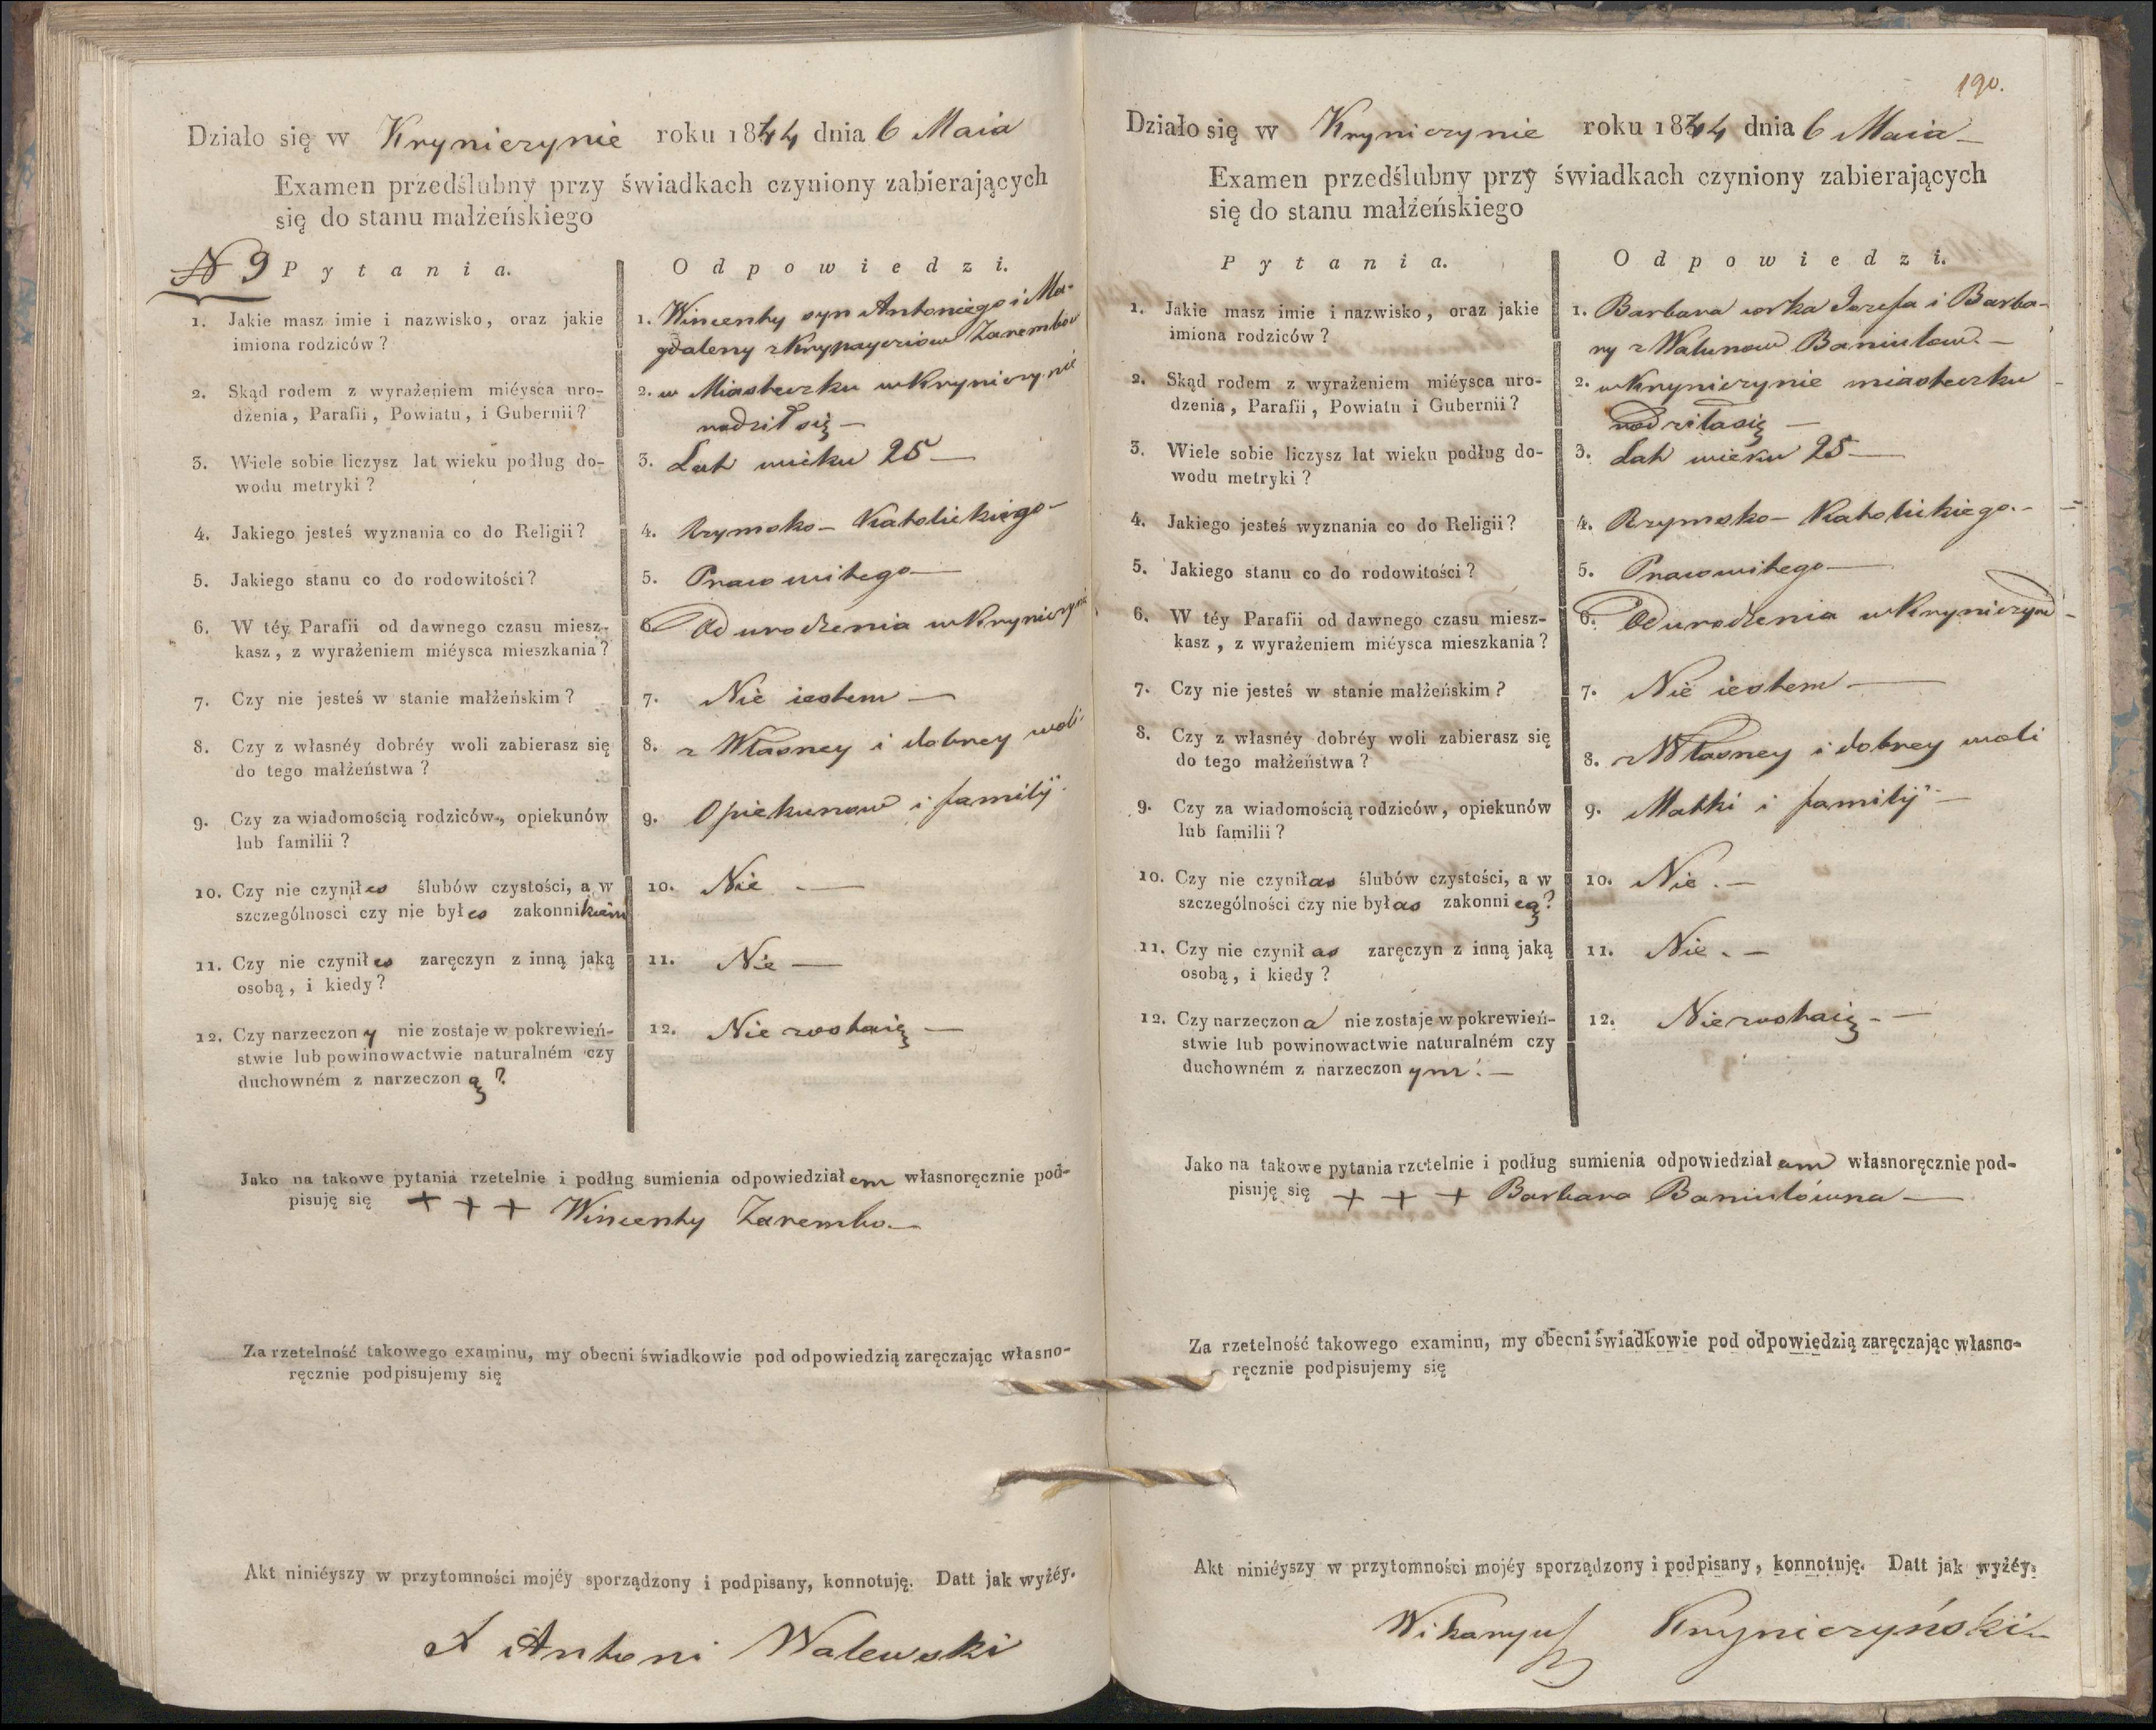 Działo się w Krynierzynie roku 1844 dnia 6 Maia
Examen przedślubny przy świadkach czyniony zabierających
się do stanu małżeńskiego
N 9 Pytania.
Odpowiedzi.
1. Jakie masz imie i nazwisko, oraz jakie
imiona rodziców?
1. Wincenty syn Antoniego i Ma-
gdaleny z Zarembow
2. Skąd rodem z wyrażeniem miéysca uro-
dzenia, Parafii, Powiatu, i Gubernii?
2. w Miasteczku w Krynierzynie
rodził się —
3. Wiele sobie liczysz lat wieku podług do-
wodu metryki?
3. Lat wieku 25 —
4. Jakiego jesteś wyznania co do Religii?
4. Rzymsko - Katolickiego -
5. Jakiego stanu co do rodowitości?
5. Prawowitego —
6. W téy Parafii od dawnego czasu miesz-
kasz, z wyrażeniem miéysca mieszkania?
6. Od urodzenia w Krynierzynie
7. Czy nie jesteś w stanie małżeńskim?
7. Nie iestem —
8. Czy z własnéy dobréy woli zabierasz się
do tego małżeństwa?
8. z Własney i dobrey woli
9. Czy za wiadomością rodziców, opiekunów
lub familii?
9. Opiekunow i familÿ
10. Czy nie czyniłes ślubów czystości, a w
szczególnosci czy nie byłes zakonnikiem
10. Nie —
11. Czy nie czyniłes zaręczyn z inną jaką
osobą, i kiedy?
11. Nie —
12. Czy narzeczony nie zostaje w pokrewień-
stwie lub powinowactwie naturalném czy
duchowném z narzeczoną?
12. Nie zostaię —
Jako na takowe pytania rzetelnie i podług sumienia odpowiedziałem własnoręcznie pod-
pisuję się + + + Wincenty Zarembo —
Za rzetelność takowego examinu, my obecni świadkowie pod odpowiedzią zaręczając własno-
ręcznie podpisujemy się
Akt niniéyszy w przytomności mojéy sporządzony i podpisany, konnotuję. Datt jak wyżéy.
X Antoni Walewski
190.
Działo się w Krynierzynie roku 1844 dnia 6 Maia —
Examen przedślubny przy świadkach czyniony zabierających
się do stanu małżeńskiego
Pytania.
Odpowiedzi.
1. Jakie masz imie i nazwisko, oraz jakie
imiona rodziców?
1. Barbara corka Jozefa i Barba-
ry z Walunow Baniulow —
2. Skąd rodem z wyrażeniem miéysca uro-
dzenia, Parafii, Powiatu i Gubernii?
2. w Krynierzynie miasteczku
rodziłasię —
3. Wiele sobie liczysz lat wieku podług do-
wodu metryki?
3. Lat wieku 25 —
4. Jakiego jesteś wyznania co do Religii?
4. Rzymsko - Katolickiego. -
5. Jakiego stanu co do rodowitości?
5. Prawowitego —
6. W téy Parafii od dawnego czasu miesz-
kasz, z wyrażeniem miéysca mieszkania?
6. Od urodzenia w Krynierzynie
7. Czy nie jesteś w stanie małżeńskim?
7. Nie iestem —
8. Czy z własnéy dobréy woli zabierasz się
do tego małżeństwa?
8. z Własney i dobrey woli
9. Czy za wiadomością rodziców, opiekunów
lub familii?
9. Matki i familÿ —
10. Czy nie czyniłas ślubów czystości, a w
szczególności czy nie byłas zakonnicą?
10. Nie. —
11. Czy nie czyniłas zaręczyn z inną jaką
osobą, i kiedy?
11. Nie. —
12. Czy narzeczona nie zostaje w pokrewień-
stwie lub powinowactwie naturalném czy
duchowném z narzeczonym. —
12. Niezostaię. —
Jako na takowe pytania rzetelnie i podług sumienia odpowiedziałam własnoręcznie pod-
pisuję się + + + Barbara Baniulówna —
Za rzetelność takowego examinu, my obecni świadkowie pod odpowiedzią zaręczając własno-
ręcznie podpisujemy się
Akt niniéyszy w przytomności mojéy sporządzony i podpisany, konnotuję. Datt jak wyżéy.
Wikaryusz Krynierzyński